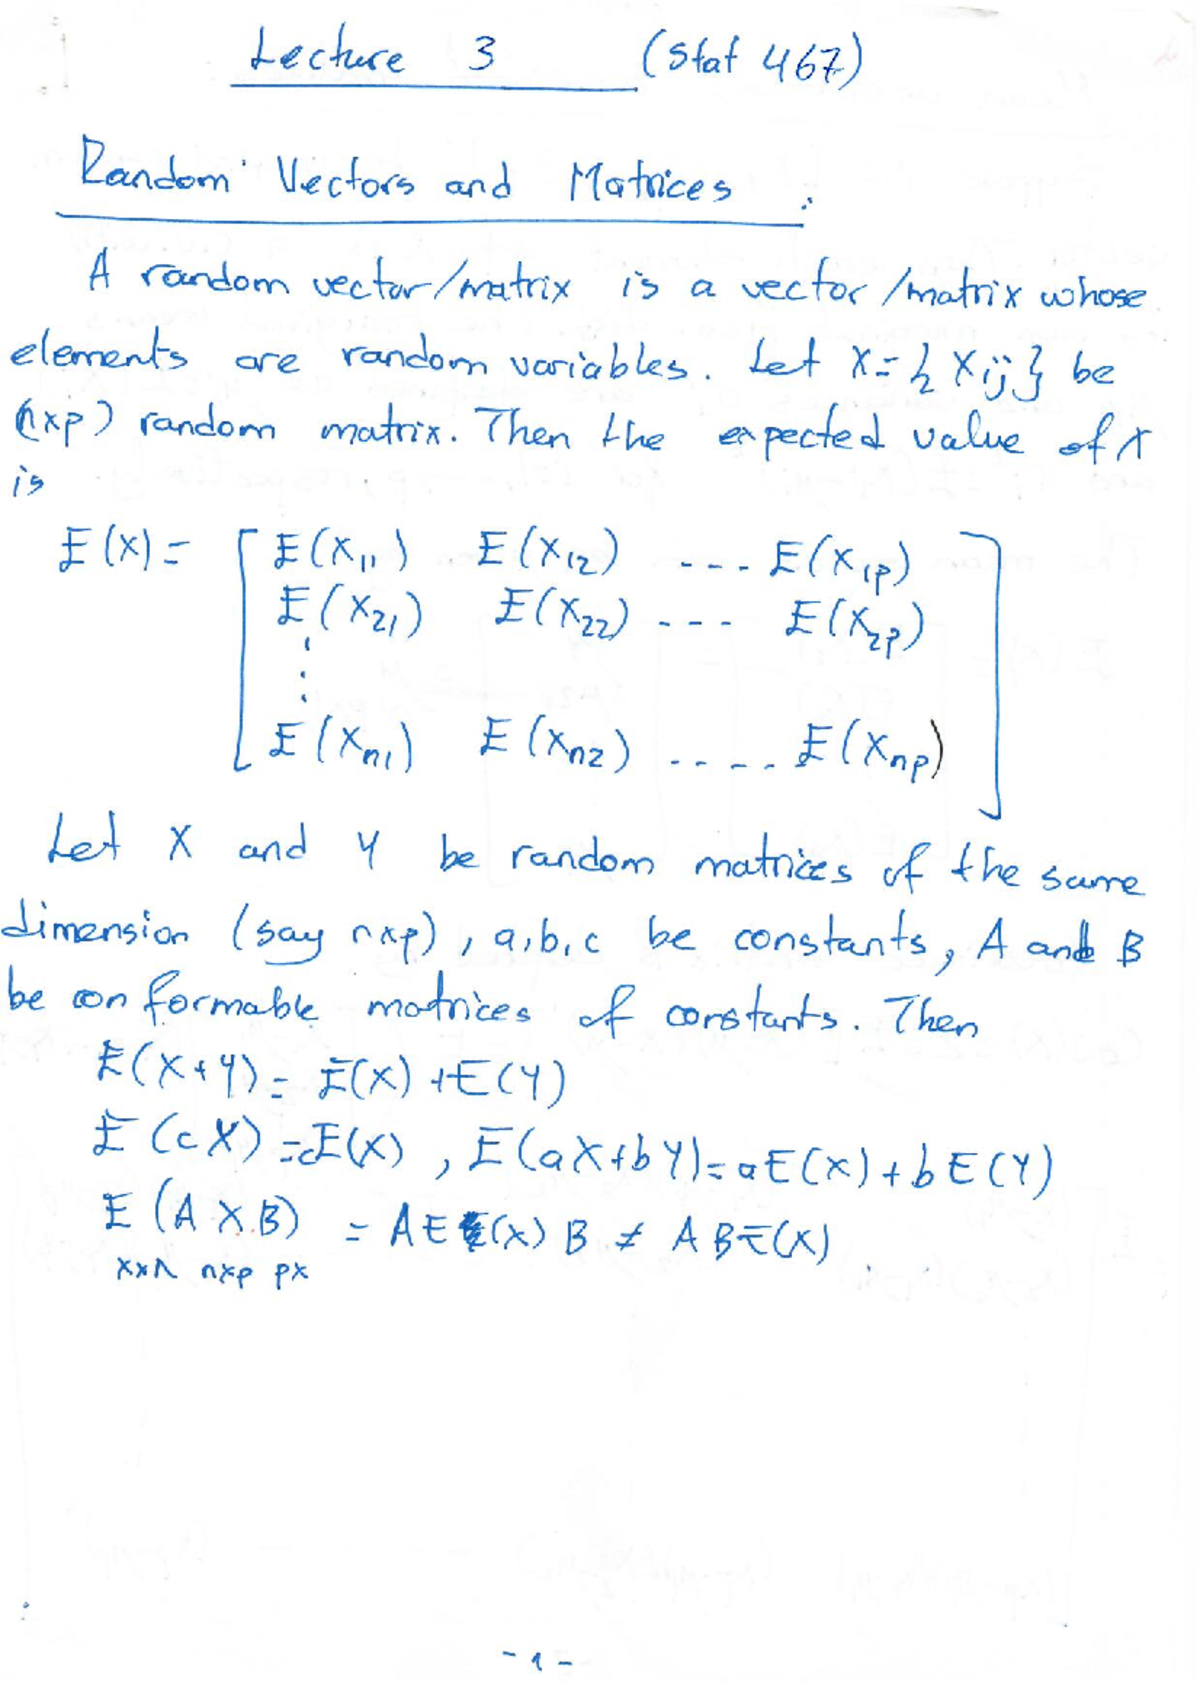 Lecture 3 (Stat 467)
Random Vectors and Matrices :
A random vector/matrix is a vector/matrix whose
elements are random variables. Let X={Xij} be
(nxp) random matrix. Then the expected value of X
is
E(X)= [ E(X11) E(X12) --- E(X1p)
E(X21) E(X22) --- E(X2p)
⋮
E(Xn1) E(Xn2) ----- E(Xnp) ]
Let X and Y be random matrices of the same
dimension (say nxp), a,b,c be constants, A and B
be conformable matrices of constants. Then
E(X+Y)= E(X)+E(Y)
E(cX)=cE(X), E(aX+bY)=aE(X)+bE(Y)
E(AXB) = AE(X)B ≠ ABE(X).
xxn nxp px
-1-